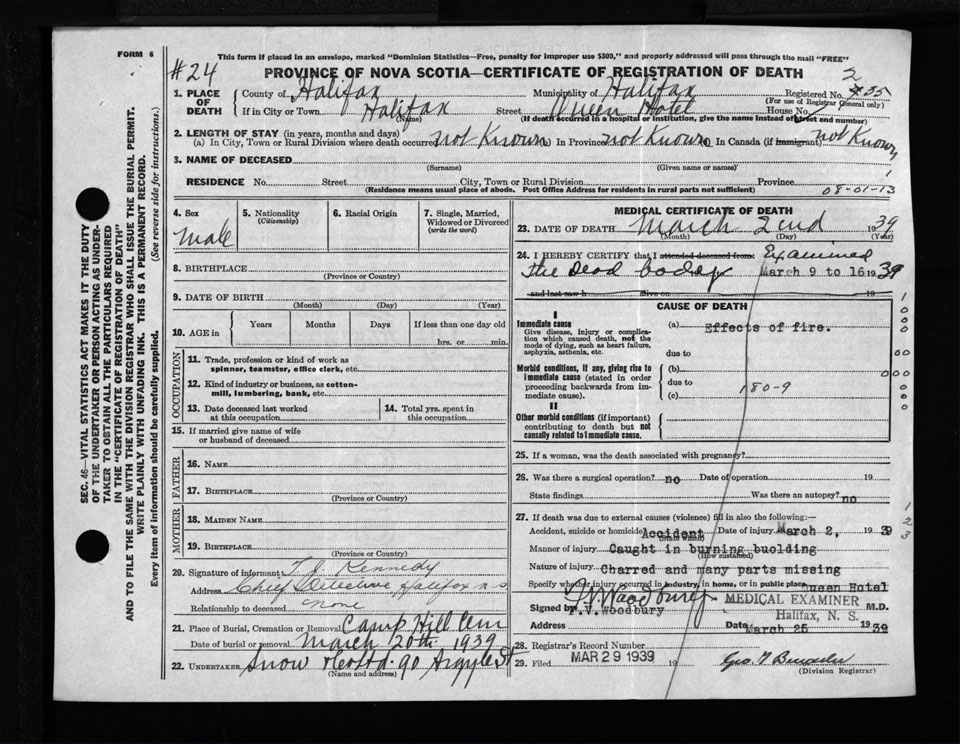 FORM 6
This form if placed in an envelope, marked "Dominion Statistics—Free, penalty for improper use $300," and properly addressed will pass through the mail "FREE"
#24
PROVINCE OF NOVA SCOTIA—CERTIFICATE OF REGISTRATION OF DEATH
1. PLACE OF DEATH
County of Halifax Municipality of Halifax Registered No.
(For use of Registrar General only)
If in City or Town Halifax Street Queen Hotel House No.
(Name) (If death occurred in a hospital or institution, give the name instead of street and number)
2. LENGTH OF STAY (in years, months and days)
(a) In City, Town or Rural Division where death occurred not Known (b) In Province not Known (c) In Canada (if immigrant) not Known
3. NAME OF DECEASED
(Surname) (Given name or names)
RESIDENCE No. Street City, Town or Rural Division Province
(Residence means usual place of abode. Post Office Address for residents in rural parts not sufficient)
08-01-13
4. Sex
male
5. Nationality
(Citizenship)
6. Racial Origin
7. Single, Married, Widowed or Divorced
(write the word)
8. BIRTHPLACE
(Province or Country)
9. DATE OF BIRTH
(Month) (Day) (Year)
10. AGE in
Years Months Days If less than one day old
hrs. or min.
OCCUPATION
11. Trade, profession or kind of work as spinner, teamster, office clerk, etc.
12. Kind of industry or business, as cotton-mill, lumbering, bank, etc.
13. Date deceased last worked at this occupation
14. Total yrs. spent in this occupation
15. If married give name of wife or husband of deceased
FATHER
16. NAME
17. BIRTHPLACE
(Province or Country)
MOTHER
18. MAIDEN NAME
19. BIRTHPLACE
(Province or Country)
20. Signature of informant T. J. Kennedy
Address Chief Detective, Halifax n s
Relationship to deceased none
21. Place of Burial, Cremation or Removal Camp Hill Cem
Date of burial or removal March 20th 1939
22. UNDERTAKER Snow & Co Ltd. 90 Argyle St
(Name and address)
MEDICAL CERTIFICATE OF DEATH
23. DATE OF DEATH March 2nd 1939
(Month) (Day) (Year)
24. I HEREBY CERTIFY that I attended deceased from: Examined
The Dead body March 9 to 16 1939
and last saw h alive on 19
CAUSE OF DEATH
I
Immediate cause
Give disease, injury or complication which caused death, not the mode of dying, such as heart failure, asphyxia, asthenia, etc.
(a) Effects of fire.
due to
Morbid conditions, if any, giving rise to immediate cause (stated in order proceeding backwards from immediate cause).
(b)
due to 180-9
(c)
II
Other morbid conditions (if important) contributing to death but not causally related to immediate cause.
25. If a woman, was the death associated with pregnancy?
26. Was there a surgical operation? no Date of operation 19
State findings Was there an autopsy? no
27. If death was due to external causes (violence) fill in also the following:—
Accident, suicide or homicide Accident Date of injury March 2, 1939
(State which)
Manner of injury Caught in burning buolding
(How sustained)
Nature of injury Charred and many parts missing
Specify whether injury occurred in industry, in home, or in public place Queen Hotel
Signed by V. Woodbury M.D.
MEDICAL EXAMINER
Halifax, N. S.
Address Date March 25 1939
28. Registrar's Record Number
29. Filed MAR 29 1939 19
(Division Registrar)
SEC. 46—VITAL STATISTICS ACT MAKES IT THE DUTY
OF THE UNDERTAKER OR PERSON ACTING AS UNDERTAKER TO OBTAIN ALL THE PARTICULARS REQUIRED
IN THE "CERTIFICATE OF REGISTRATION OF DEATH"
AND TO FILE THE SAME WITH THE DIVISION REGISTRAR WHO SHALL ISSUE THE BURIAL PERMIT.
WRITE PLAINLY WITH UNFADING INK. THIS IS A PERMANENT RECORD.
Every item of information should be carefully supplied. (See reverse side for instructions.)